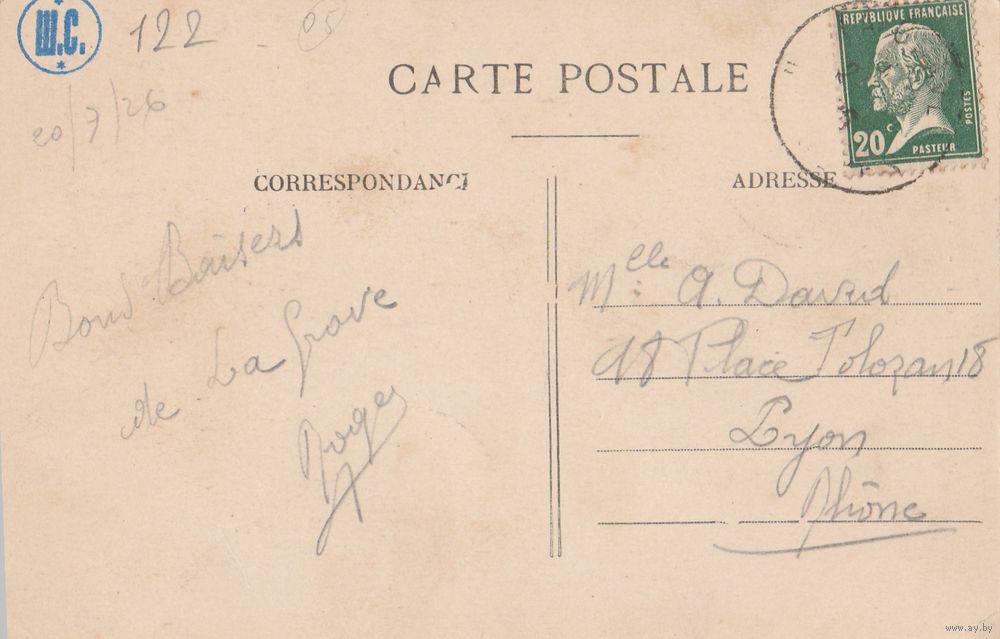 Ш.С.
122
05
20/7/26
CARTE POSTALE
REPVBLIQUE FRANÇAISE
20 c
POSTES
PASTEUR
CORRESPONDANCE
Bons Baisers
de La Grave
Roger
ADRESSE
Mlle A. David
18 Place Tolozan 18
Lyon
Rhône
www.ay.by